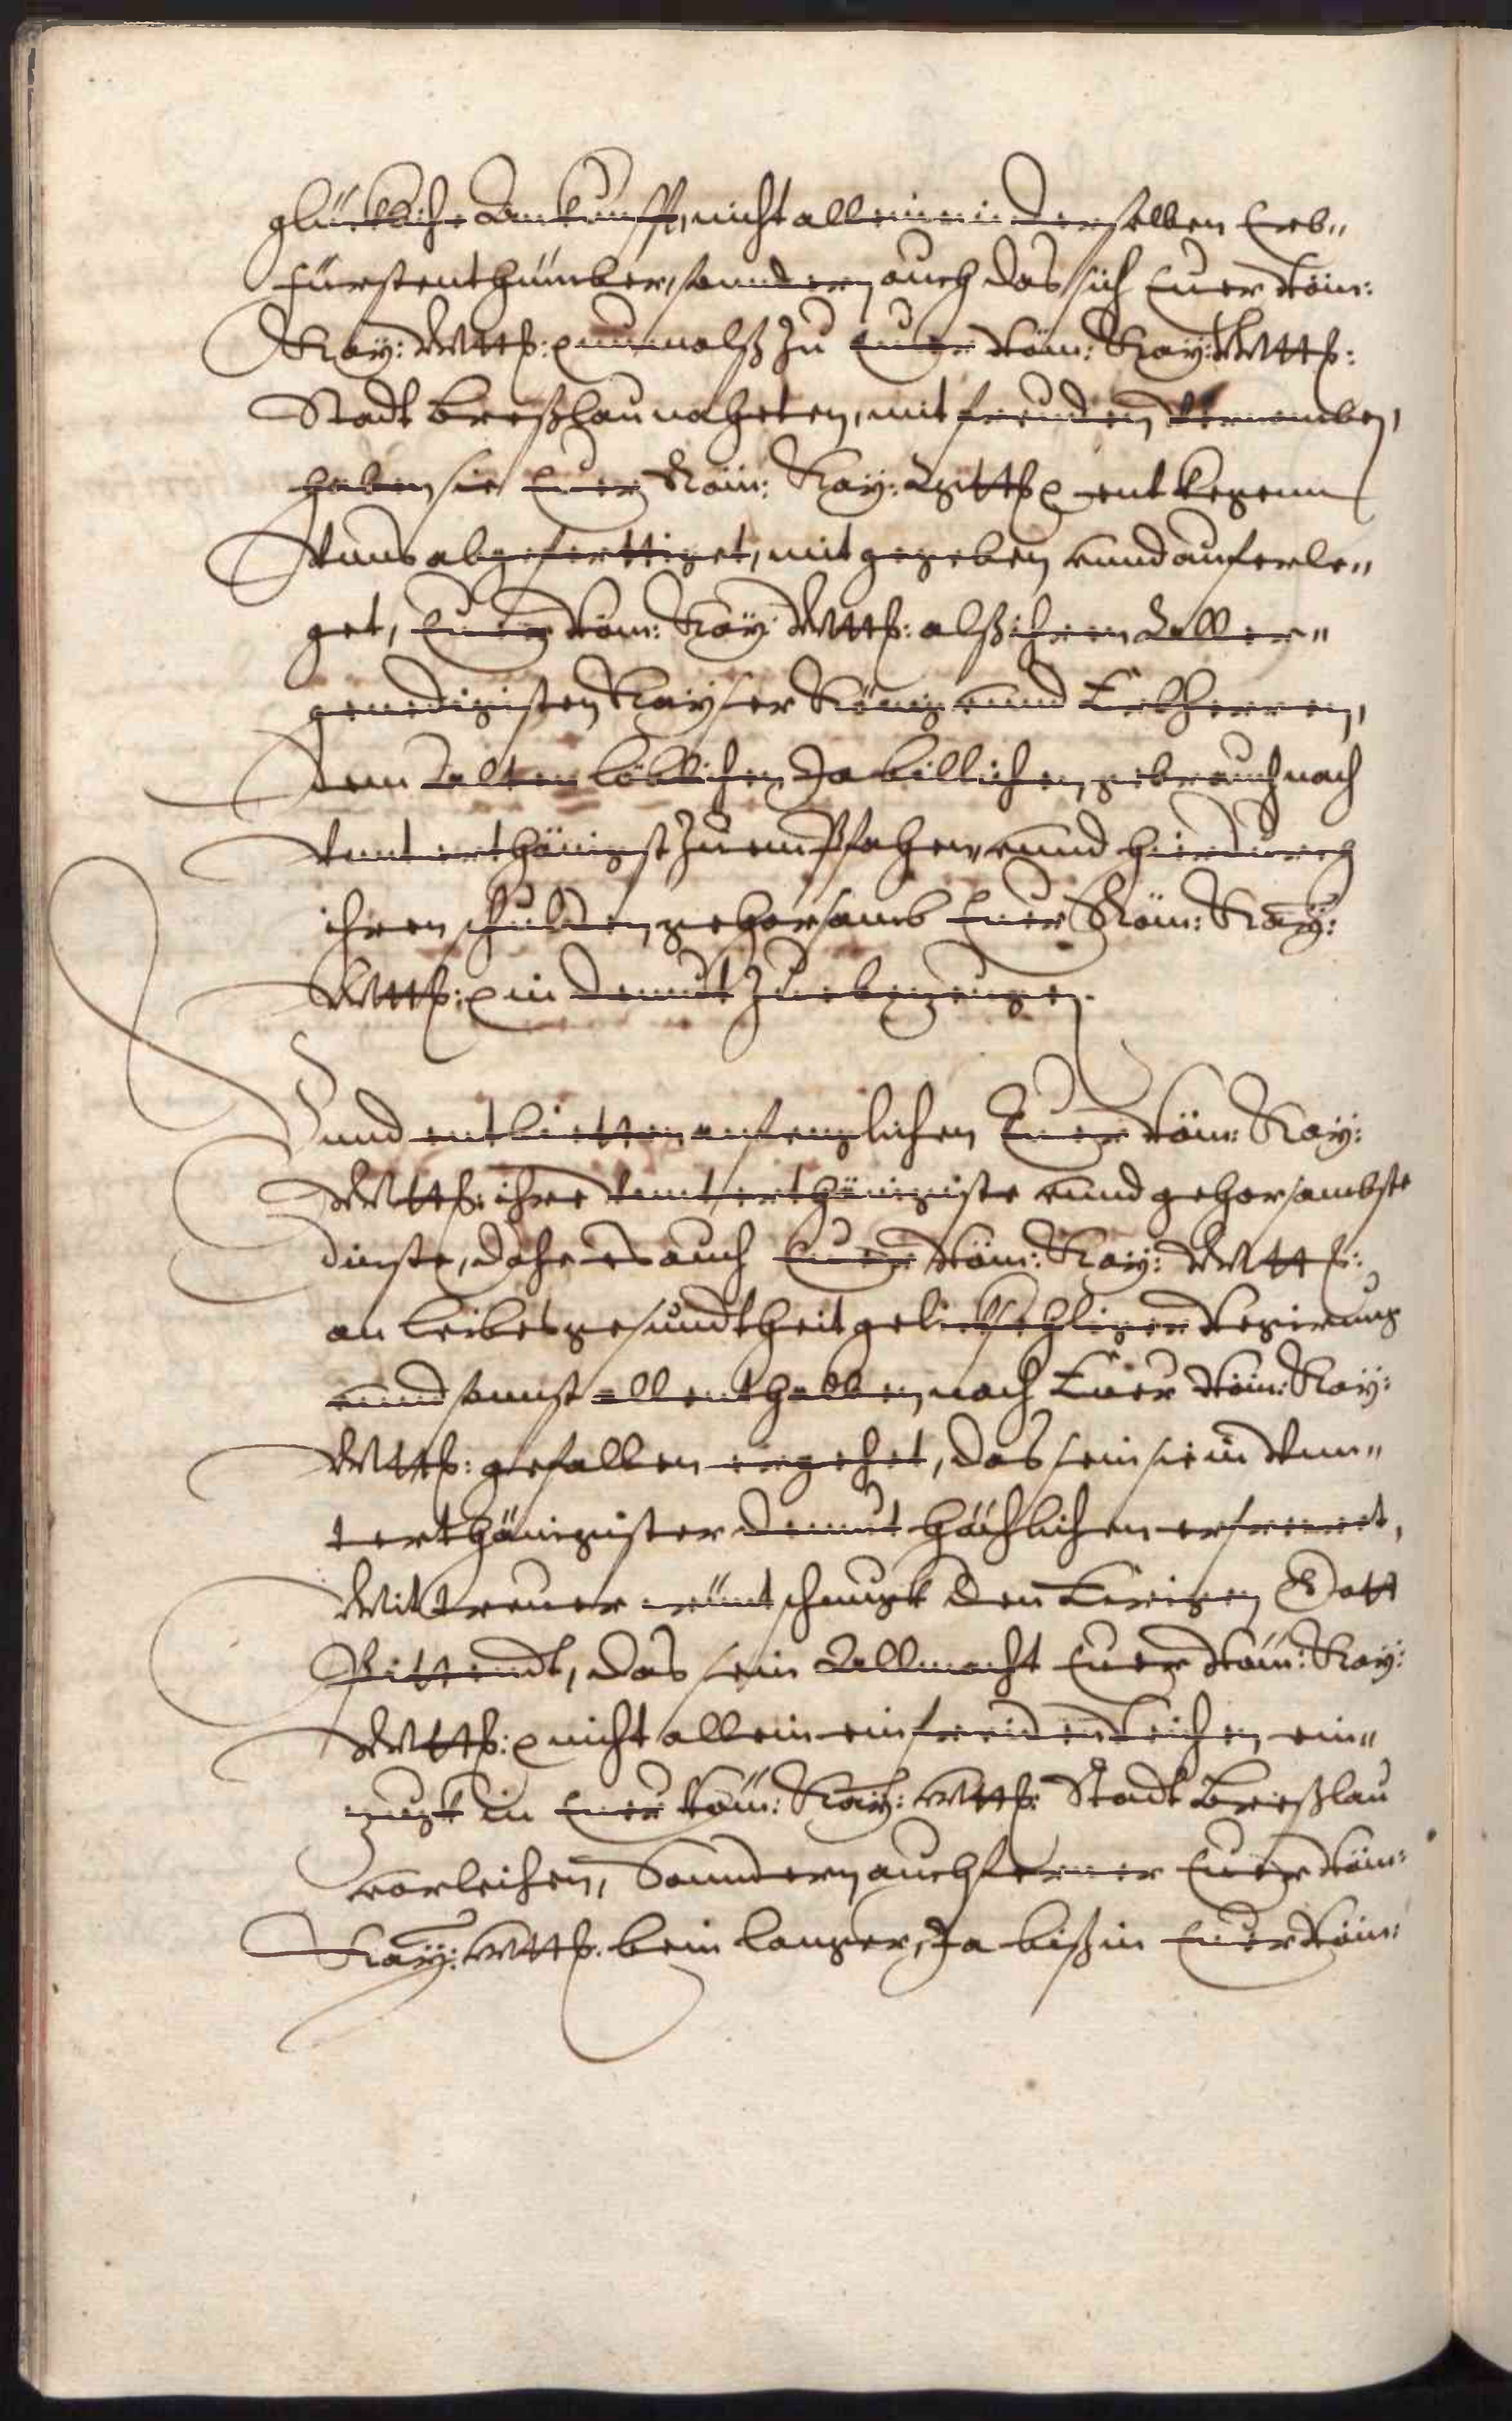 glückliche Ankunfft, nicht allein in derselben Erb„
Fürstenthümber, sondern auch das sich Euer Röm:
Kay: Mtt: nunmalß zu Euer Röm: Kay: Mtt:
Stadt Breßlau naheten, mit freuden vernomben,
haben sie Euer Röm: Kay: Mtt: entkegenn
Vnns abgeferttiget, mit gegeben vnnd auferle„
get, Euer Röm: Kay: Mtt: alß ihren Aller„
genedigisten Kayser König vnnd Erbherren,
dem Alten löblichen Ja billichen gebrauch nach
Vnnterthänigst zu empfahen, vnnd hierdurch
ihren schulden gehorsamb Euer Röm: Kay:
Mtt: in demut zu ebezeugen.
Vnnd entbietten anfenglichen Euer Röm: Kay:
Mtt: ihre Vnnterthänigiste vnnd gehorsambste
dienste, Dahe es auch Euer Röm: Kay: Mtt:
an leibes gesundtheit geliebsehliger Regirung
vnnd sonnst allenthalben nach Euer Röm: Kay:
Mtt: gefallen ergehet, das sein sie in Vnn„
terthänigister demut höchlichen erfreuet,
Mit treuer wüntschungk den Ewigen Gott
Bittendt, das sein Allmacht Euer Röm: Kay:
Mtt: nicht allein ein freidenreichen ein„
zugk in Euer Röm: Kay: Mtt: Stadt Breßlau
vorleihen, Sonndern auch ferner Euer Röm:
Kay: Mtt: beim langer, Ja biß in Euer Röm: